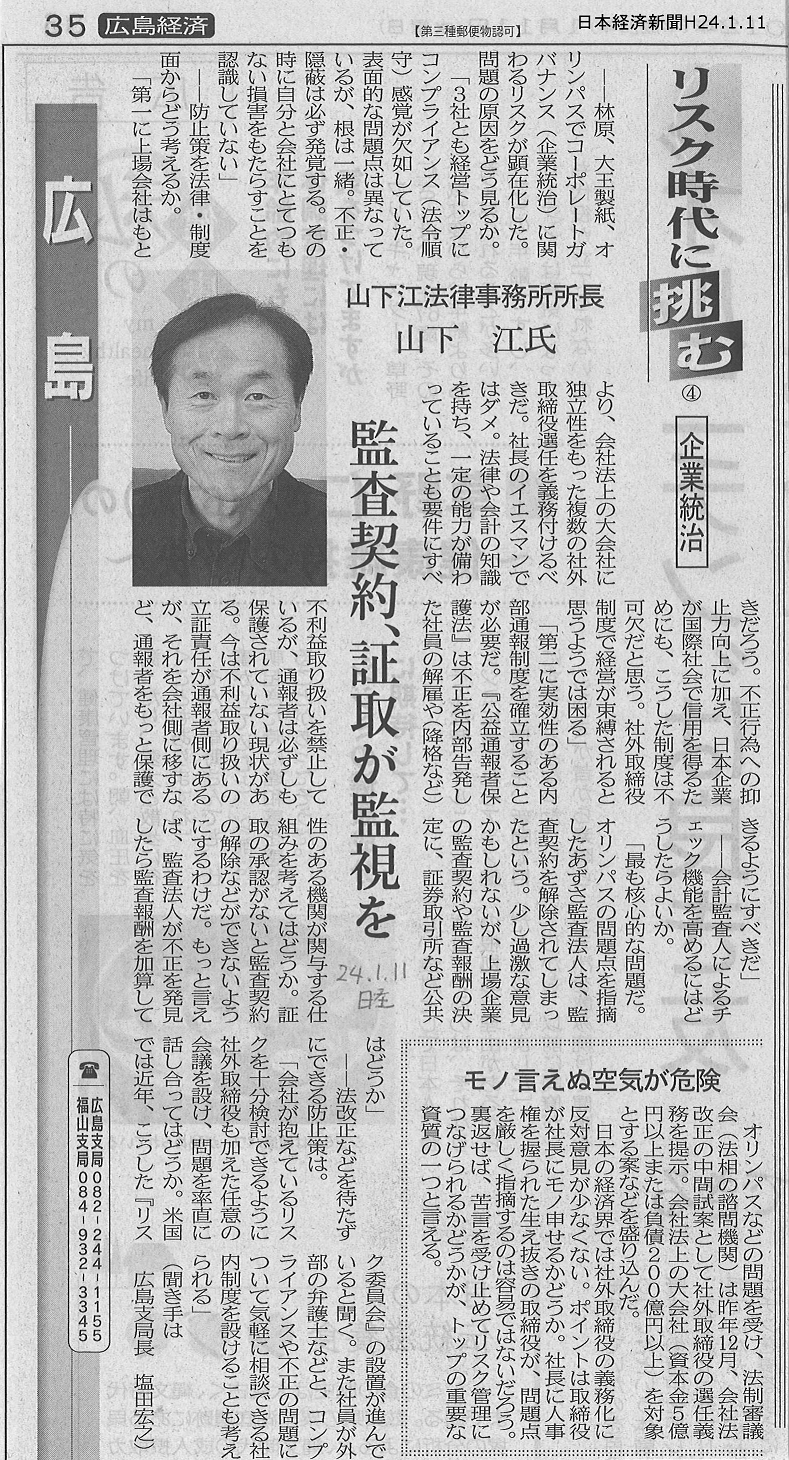 35 広島経済
【第三種郵便物認可】
日本経済新聞H24.1.11
リスク時代に挑む
④
企業統治
山下江法律事務所所長
山下 江氏
監査契約、証取が監視を
――林原、大王製紙、オ
リンパスでコーポレートガ
バナンス（企業統治）に関
わるリスクが顕在化した。
問題の原因をどう見るか。
「３社とも経営トップに
コンプライアンス（法令順
守）感覚が欠如していた。
表面的な問題点は異なって
いるが、根は一緒。不正・
隠蔽は必ず発覚する。その
時に自分と会社にとてつも
ない損害をもたらすことを
認識していない」
――防止策を法律・制度
面からどう考えるか。
「第一に上場会社はもと
より、会社法上の大会社に
独立性をもった複数の社外
取締役選任を義務付けるべ
きだ。社長のイエスマンで
はダメ。法律や会計の知識
を持ち、一定の能力が備わ
っていることも要件にすべ
きだろう。不正行為への抑
止力向上に加え、日本企業
が国際社会で信用を得るた
めにも、こうした制度は不
可欠だと思う。社外取締役
制度で経営が束縛されると
思うようでは困る」
「第二に実効性のある内
部通報制度を確立すること
が必要だ。『公益通報者保
護法』は不正を内部告発し
た社員の解雇や（降格など）
不利益取り扱いを禁止して
いるが、通報者は必ずしも
保護されていない現状があ
る。今は不利益取り扱いの
立証責任が通報者側にある
が、それを会社側に移すな
ど、通報者をもっと保護で
きるようにすべきだ」
――会計監査人によるチ
ェック機能を高めるにはど
うしたらよいか。
「最も核心的な問題だ。
オリンパスの問題点を指摘
したあずさ監査法人は、監
査契約を解除されてしまっ
たという。少し過激な意見
かもしれないが、上場企業
の監査契約や監査報酬の決
定に、証券取引所など公共
性のある機関が関与する仕
組みを考えてはどうか。証
取の承認がないと監査契約
の解除などができないよう
にするわけだ。もっと言え
ば、監査法人が不正を発見
したら監査報酬を加算して
はどうか」
――法改正などを待たず
にできる防止策は。
「会社が抱えているリス
クを十分検討できるように
社外取締役も加えた任意の
会議を設け、問題を率直に
話し合ってはどうか。米国
では近年、こうした『リス
ク委員会』の設置が進んで
いると聞く。また社員が外
部の弁護士などと、コンプ
ライアンスや不正の問題に
ついて気軽に相談できる社
内制度を設けることも考え
られる」
（聞き手は
広島支局長 塩田宏之）
24.1.11
日経
モノ言えぬ空気が危険
オリンパスなどの問題を受け、法制審議
会（法相の諮問機関）は昨年12月、会社法
改正の中間試案として社外取締役の選任義
務を提示。会社法上の大会社（資本金５億
円以上または負債２００億円以上）を対象
とする案などを盛り込んだ。
日本の経済界では社外取締役の義務化に
反対意見が少なくない。ポイントは取締役
が社長にモノ申せるかどうか。社長に人事
権を握られた生え抜きの取締役が、問題点
を厳しく指摘するのは容易ではないだろう。
裏返せば、苦言を受け止めてリスク管理に
つなげられるかどうかが、トップの重要な
資質の一つと言える。
広島
☎ 広島支局082-244-1155
福山支局084-932-3345